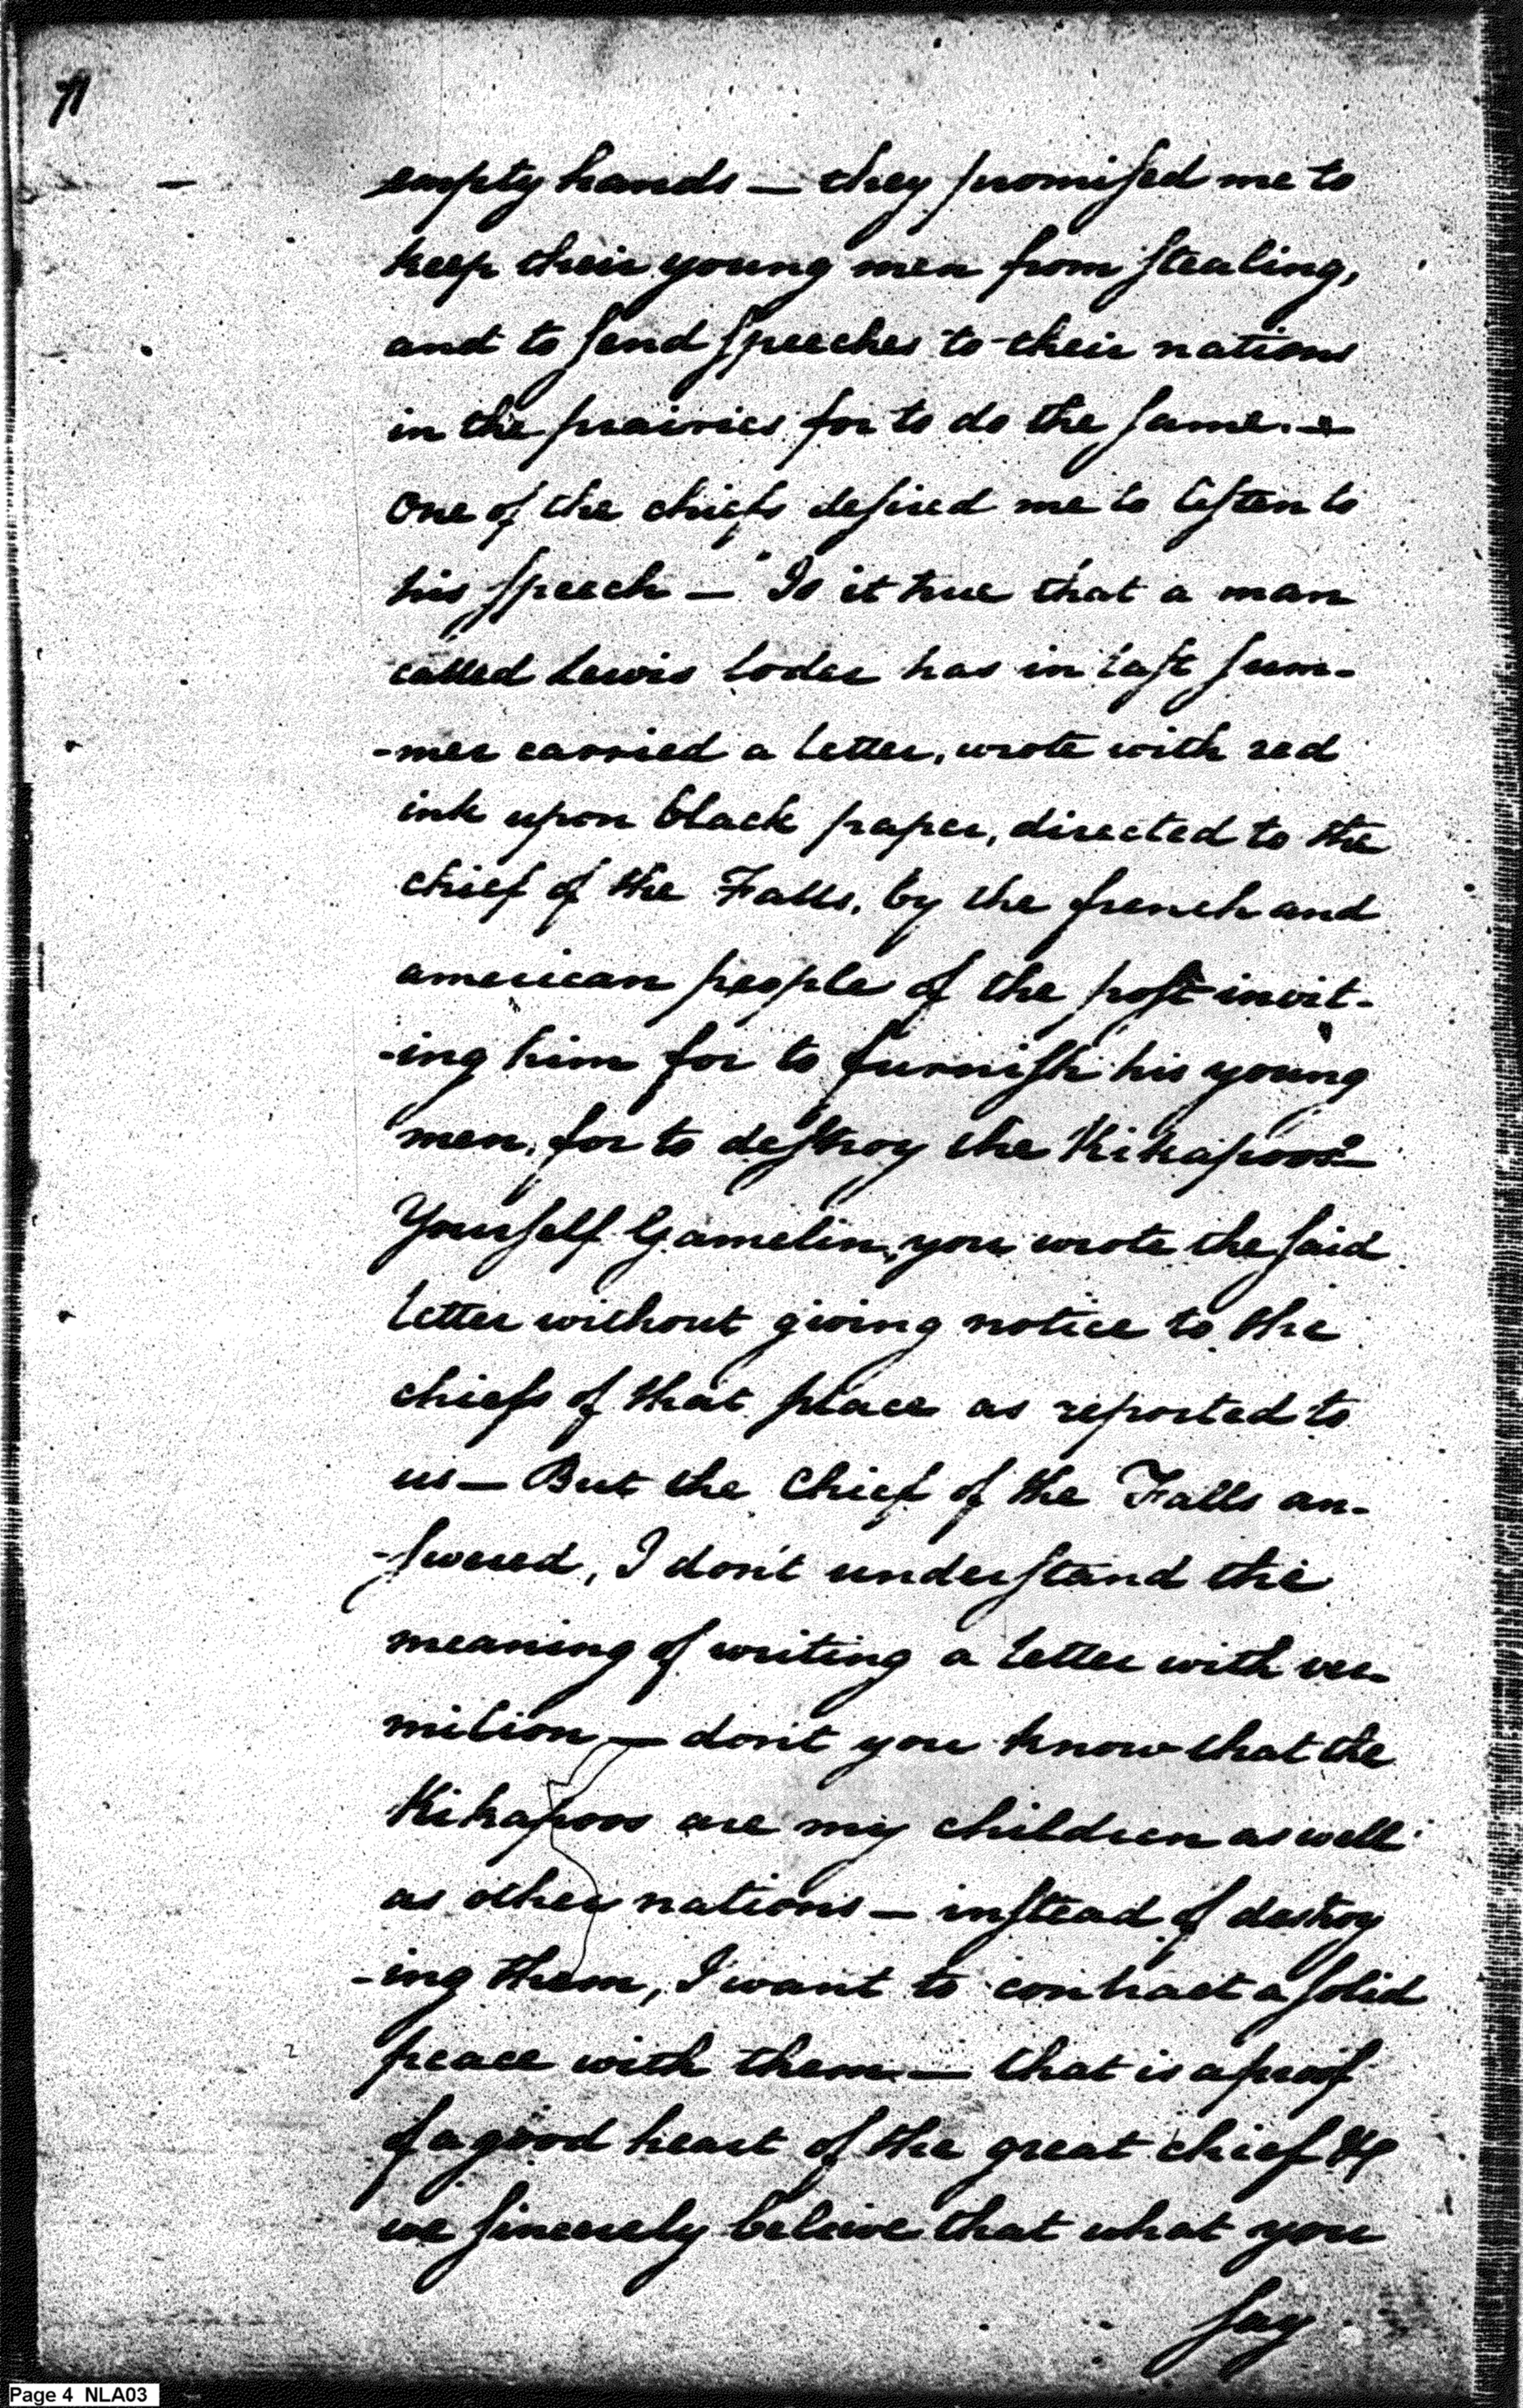 empty hands — they promised me to
keep their young men from stealing,
and to send speeches to their nations
in the prairies for to do the same. —
One of the chiefs desired me to listen to
his speech — "Is it true that a man
called Lewis Loder has in last sum-
-mer carried a letter, wrote with red
ink upon black paper, directed to the
chief of the Falls, by the french and
american people of the post invit-
-ing him for to furnish his young
men, for to destroy the Kikapoos? —
Yourself Gamelin, you wrote the said
letter without giving notice to the
chiefs of that place as reported to
us — But the Chief of the Falls an-
-swered, I don't understand the
meaning of writing a letter with ver-
milion — don't you know that the
Kikapoos are my children as well
as other nations — instead of destroy
-ing them, I want to contract a solid
peace with them — that is a proof
of a good heart of the great chief &
we sincerely beleive that what you
say
Page 4 NLA03